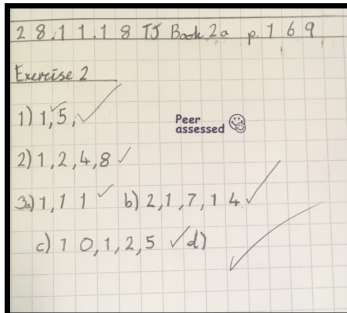 28.11.18 TJ Book 2a p.169
Exercise 2
1) 1,5,
Peer
assessed
2) 1,2,4,8
3a) 1,11 b) 2,1,7,14
c) 10,1,2,5 d)